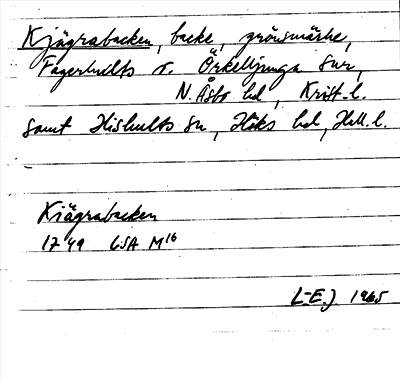 Kjägrabacken, backe, gränsmärke,
Fagerhults o. Örkelljunga snr,
N. Åsbo hd, Krist. l.
samt Hishults sn, Höks hd, Hall. l.
Kiägrabacken
1749 LSA M16
L-E. J. 1965